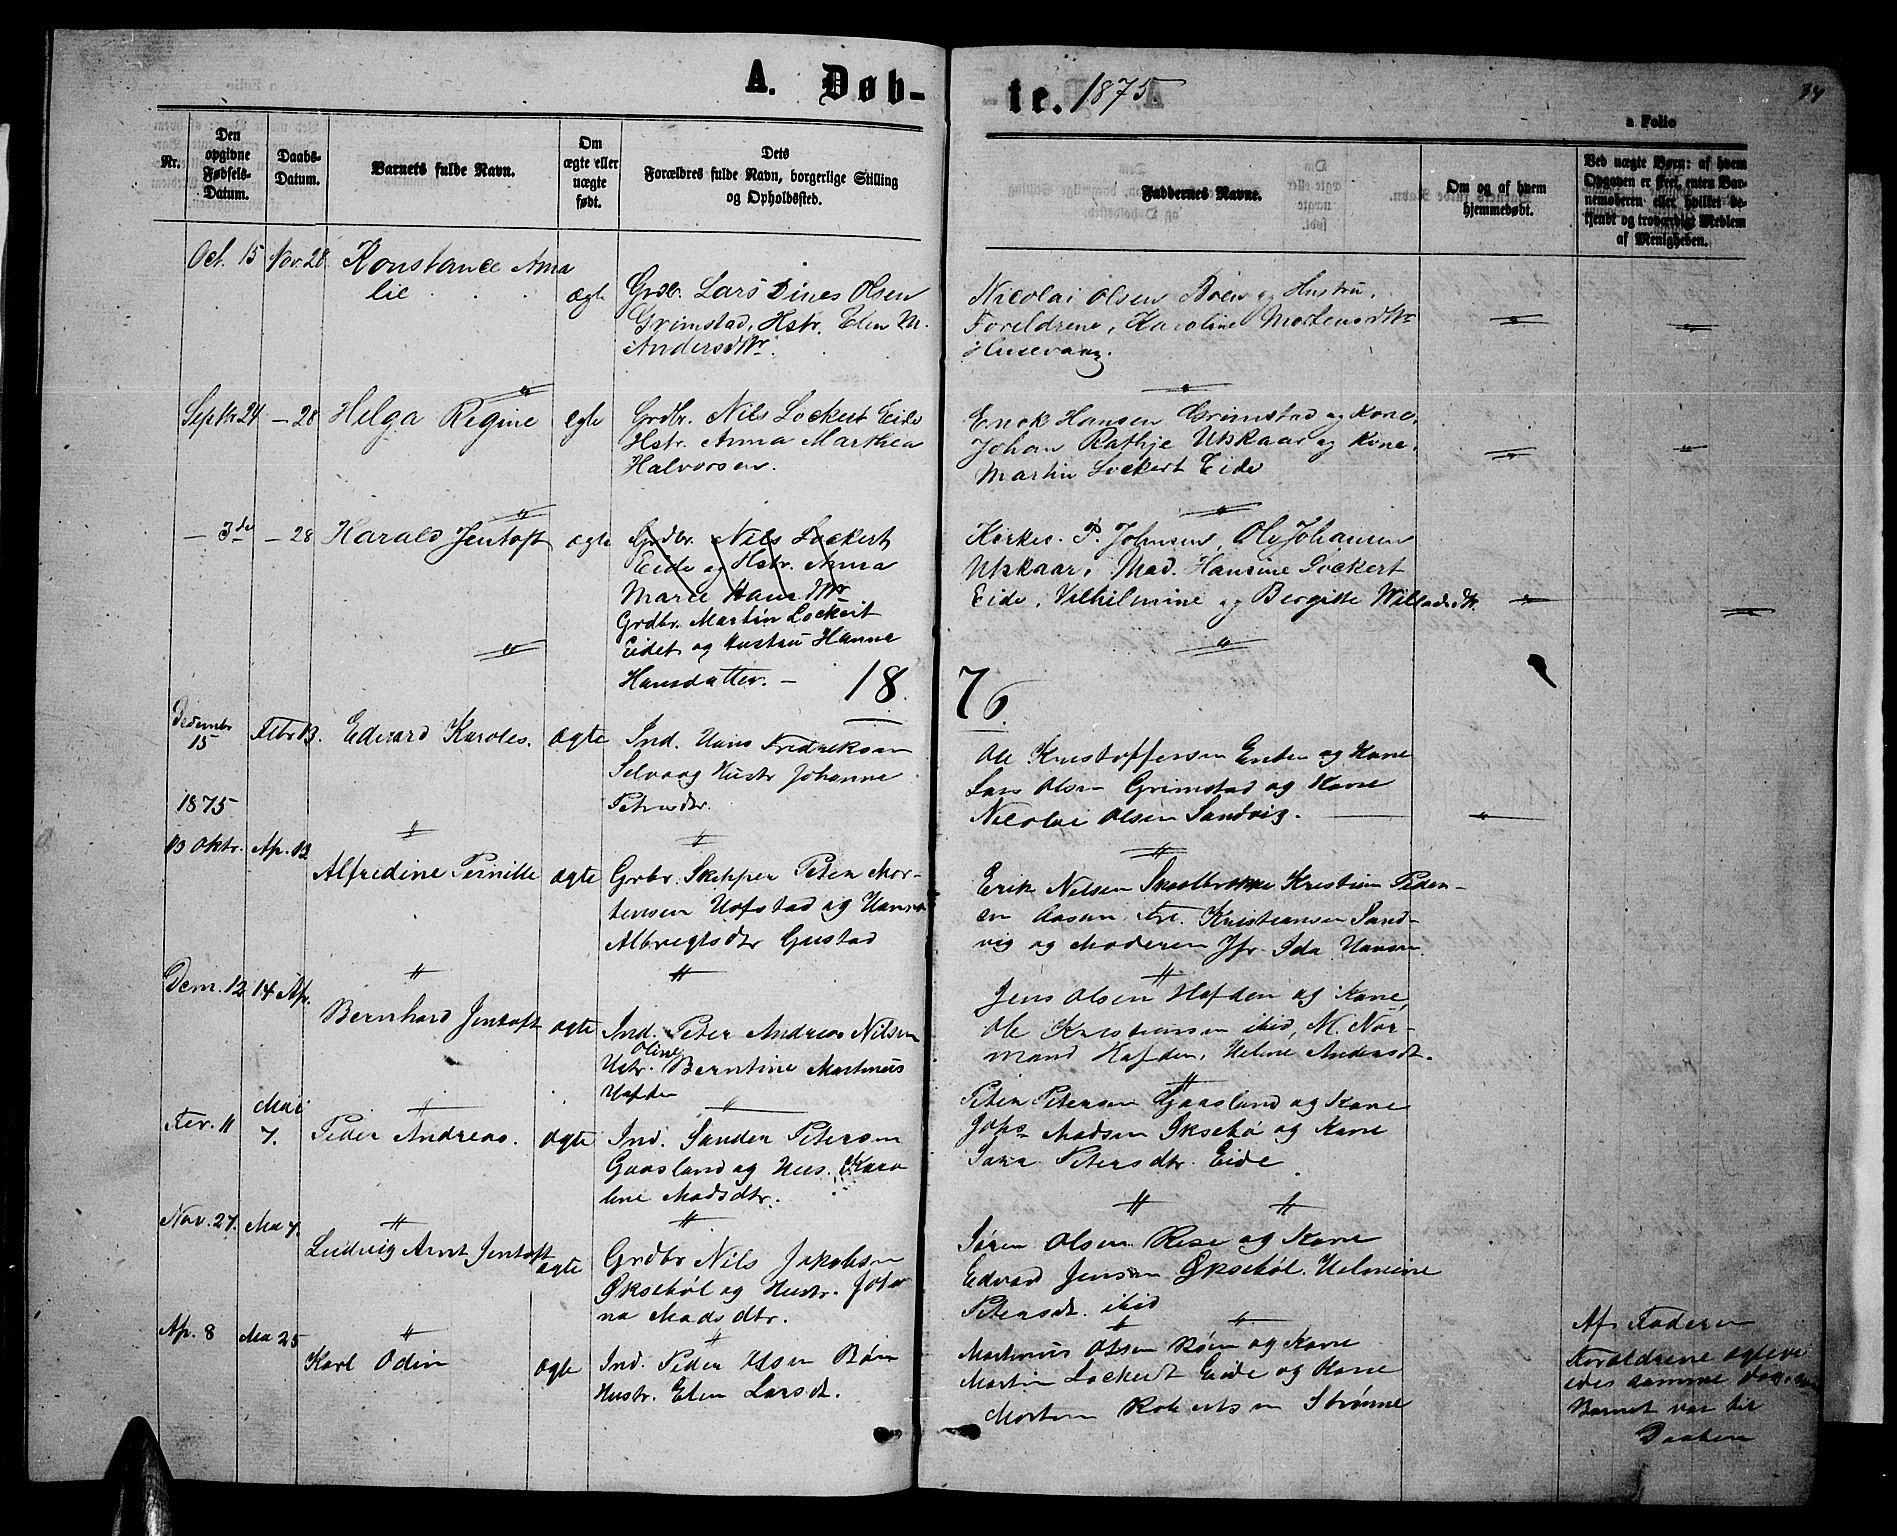 A. Døb-
te. 1875.
34
a Folio
Nr.
Den
opgivne
Fødsels-
Datum.
Daabs-
Datum.
Barnets fulde Navn.
Om
ægte eller
uægte
født.
Dets
Forældres fulde Navn, borgerlige Stilling
og Opholdssted.
Faddernes Navne.
Om og af hvem
hjemmedøbt.
Ved uægte Børn: af hvem
Opgaven er skeet, enten Bar-
nemoderen eller hvilket be-
kjendt og troværdigt Medlem
af Menigheden.
Oct. 15 Nov. 28 Konstance Ama
lie
ægte
Grdbr. Lars Dines Olsen
Grimstad, Hstr. Elen M.
Andersdtr.
Nicolai Olsen Böen og Hustru,
Foreldrene, Karoline Mortensdtr
Husevaag.
Septbr 24 - 28 Helga Regine ægte
Grdbr. Nils Lockert Eide
Hstr. Anna Marthea
Halvorsen.
Enok Hansen Grimstad og Kone,
Johan Rathje Utskaar og Kone,
Martin Lockert Eide
- 3de - 28 Harald Jentoft ægte
Grdbr. Nils Lockert
Eide og Hstr. Anna
Marie Hansdtr
Grdbr. Martin Lockert
Eidet og Hustru Hanna
Hansdatter. -
Kirkes. P. Johnsen, Ole Johansen
Utskaar, Mad. Hansine Lockert
Eide, Vilhelmine og Bergitte Willadsdtr.
1876.
Decembr
15
1875
Febr 13. Edvard Karoles. ægte
Ind. Hans Fredreksen
Selvaag Hustr Johanna
Petersdtr.
Ole Kristoffersen Enten og Kone
Lars Olsen Grimstad og Kone
Nicolai Olsen Sandvig.
13 Oktr. Ap. 13 Alfredine Pernille ægte
Grbr. Skipper Peter Mor-
tensen Hofstad og Hansine
Albregtsdtr Gustad
Erik Nelsen Kristian Peder-
sen Aasen, Fre. Kristiansen Sand-
vig og Moderen Jfr. Ida Hansen.
Decm. 12 14 Ap. Bernhard Jentoft ægte
Ind. Peter Andreas Nilsen
Hstr. Oline Berntine Martinus
Hafden
Jens Olsen Hafden og Kone,
Ole Kristiansen ibid, M. Nor-
mand Hafden, Helene Andersdt.
Fev. 11 Mai
7. Peder Andreas. ægte
Ind. Sander Petersen
Gaasland og Hus. Karo
line Madsdtr.
Peter Petersen Gaasland og Kone
Johs Madsen Öksebö og Kone
Sara Petersdtr. Eide
Nov. 27 Ma 7. Ludvig Arnt Jentoft ægte
Grdbr Nils Jakobsen
Öksebøl og Hustr. Johan
na Madsdtr.
Sören Olsen Rese og Kone
Edvard Jensen Öksebøl. Helmine
Petersdt. ibid
Ap. 8 Ma 25 Karl Odin ægte
Ind. Peder Olsen Böen
Hustr. Elen Larsdt.
Martinus Olsen Röen og Kone
Martin Lockert Eide og Kone
Morten Robertsen Strömme
Af Faderen
Foraldrene
samme Dag
Barnet var til
Daaben